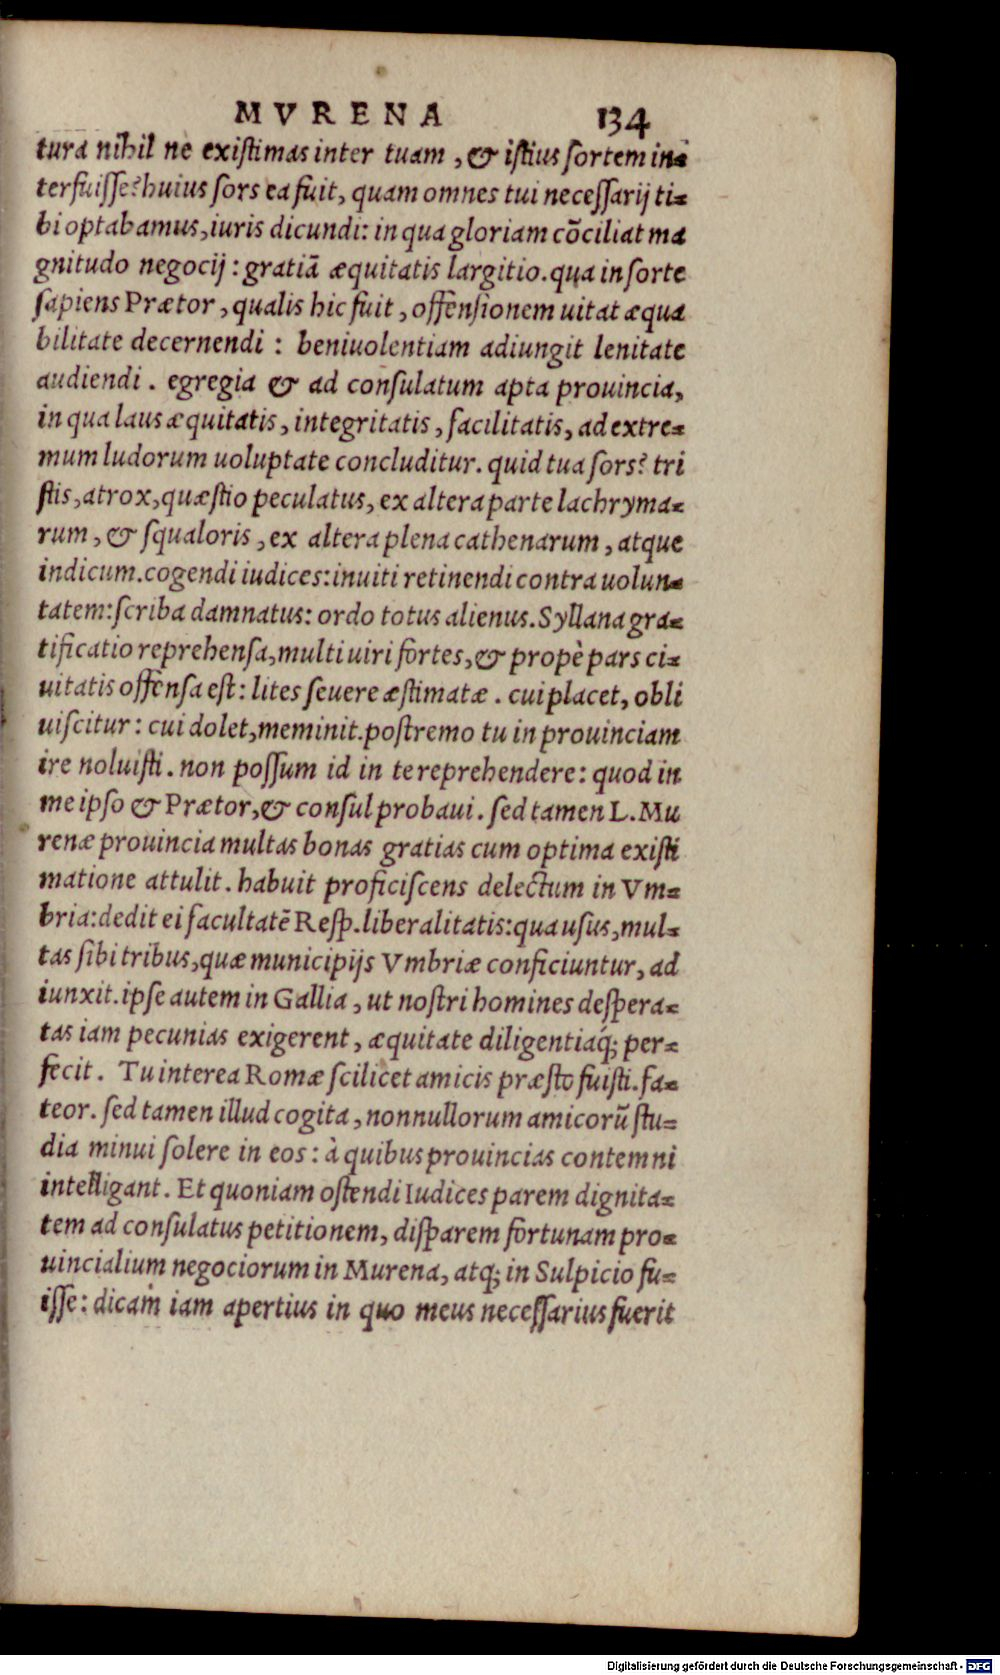 MVRENA 134
tura nihil nè existimas inter tuam, & istius sortem in-
terfuisse? huius sors ea fuit, quam omnes tui necessarij ti-
bi optabamus, iuris dicundi: in qua gloriam cōciliat ma
gnitudo negocij: gratiā æquitatis largitio. qua in sorte
sapiens Prætor, qualis hic fuit, offensionem uitat æqua
bilitate decernendi: beniuolentiam adiungit lenitate
audiendi. egregia & ad consulatum apta prouincia,
in qua laus æquitatis, integritatis, facilitatis, ad extre-
mum ludorum uoluptate concluditur. quid tua sors? tri
stis, atrox, quæstio peculatus, ex altera parte lachryma-
rum, & squaloris, ex altera plena cathenarum, atque
indicum. cogendi iudices: inuiti retinendi contra uolun-
tatem: scriba damnatus: ordo totus alienus. Syllana gra-
tificatio reprehensa, multi uiri fortes, & propè pars ci-
uitatis offensa est: lites seuere æstimatæ. cui placet, obli
uiscitur: cui dolet, meminit. postremo tu in prouinciam
ire noluisti. non possum id in te reprehendere: quod in
me ipso & Prætor, & consul probaui. sed tamen L. Mu
renæ prouincia multas bonas gratias cum optima existi
matione attulit. habuit proficiscens delectum in Vm-
bria: dedit ei facultatē Resp. liberalitatis: qua usus, mul-
tas sibi tribus, quæ municipijs Vmbriæ conficiuntur, ad
iunxit. ipse autem in Gallia, ut nostri homines despera-
tas iam pecunias exigerent, æquitate diligentiaq́; per-
fecit. Tu interea Romæ scilicet amicis præsto fuisti. fa-
teor. sed tamen illud cogita, nonnullorum amicorū stu-
dia minui solere in eos: à quibus prouincias contemni
intelligant. Et quoniam ostendi Iudices parem dignita-
tem ad consulatus petitionem, disparem fortunam pro-
uincialium negociorum in Murena, atq; in Sulpicio fu-
isse: dicam iam apertius in quo meus necessarius fuerit
Digitalisierung gefördert durch die Deutsche Forschungsgemeinschaft - DFG